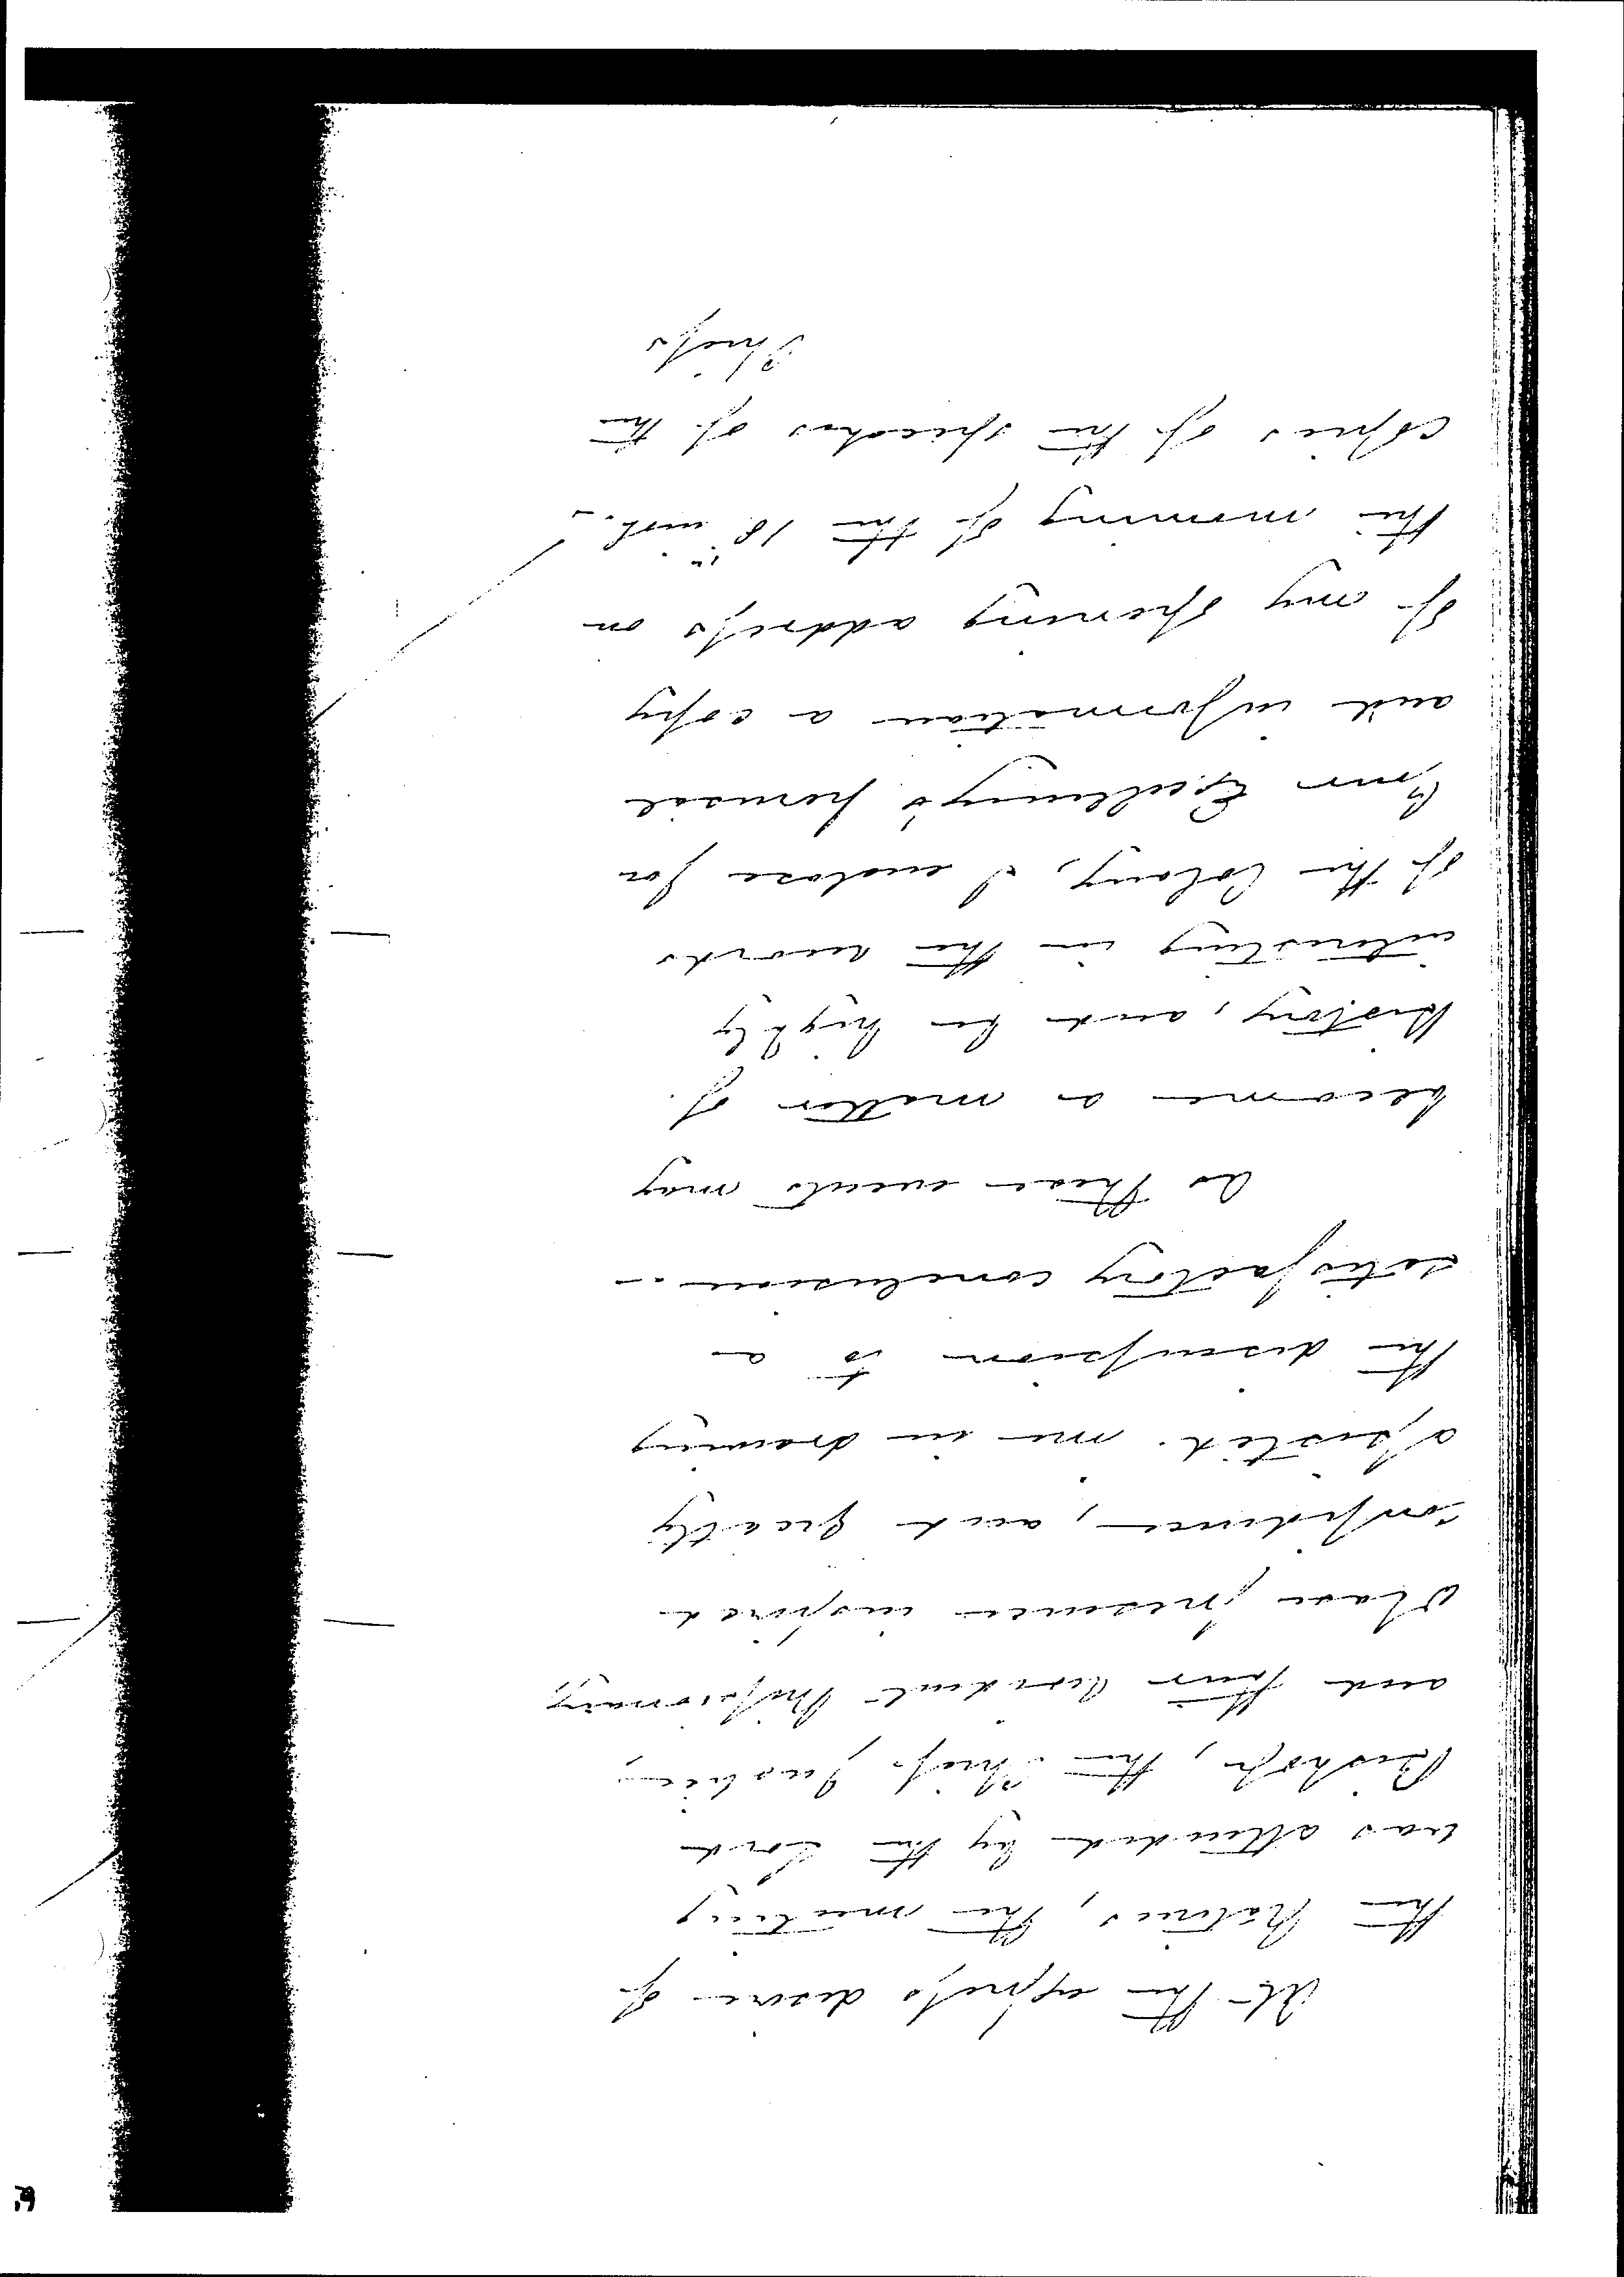 At the express desire of
the Natives, the meeting
was attended by the Lord
Bishop, the Chief Justice,
and four resident Missionary's,
whose presence inspired
confidence, and greatly
assisted me in drawing
the discussion to a
satisfactory conclusion. -
As these events may
become a matter of
History, and be highly
interesting in the records
of the Colony, I enclose for
Your Excellency's perusal
and information a copy
of my opening address on
the morning of the 18th inst. -
Copies of the speeches of the
Chiefs